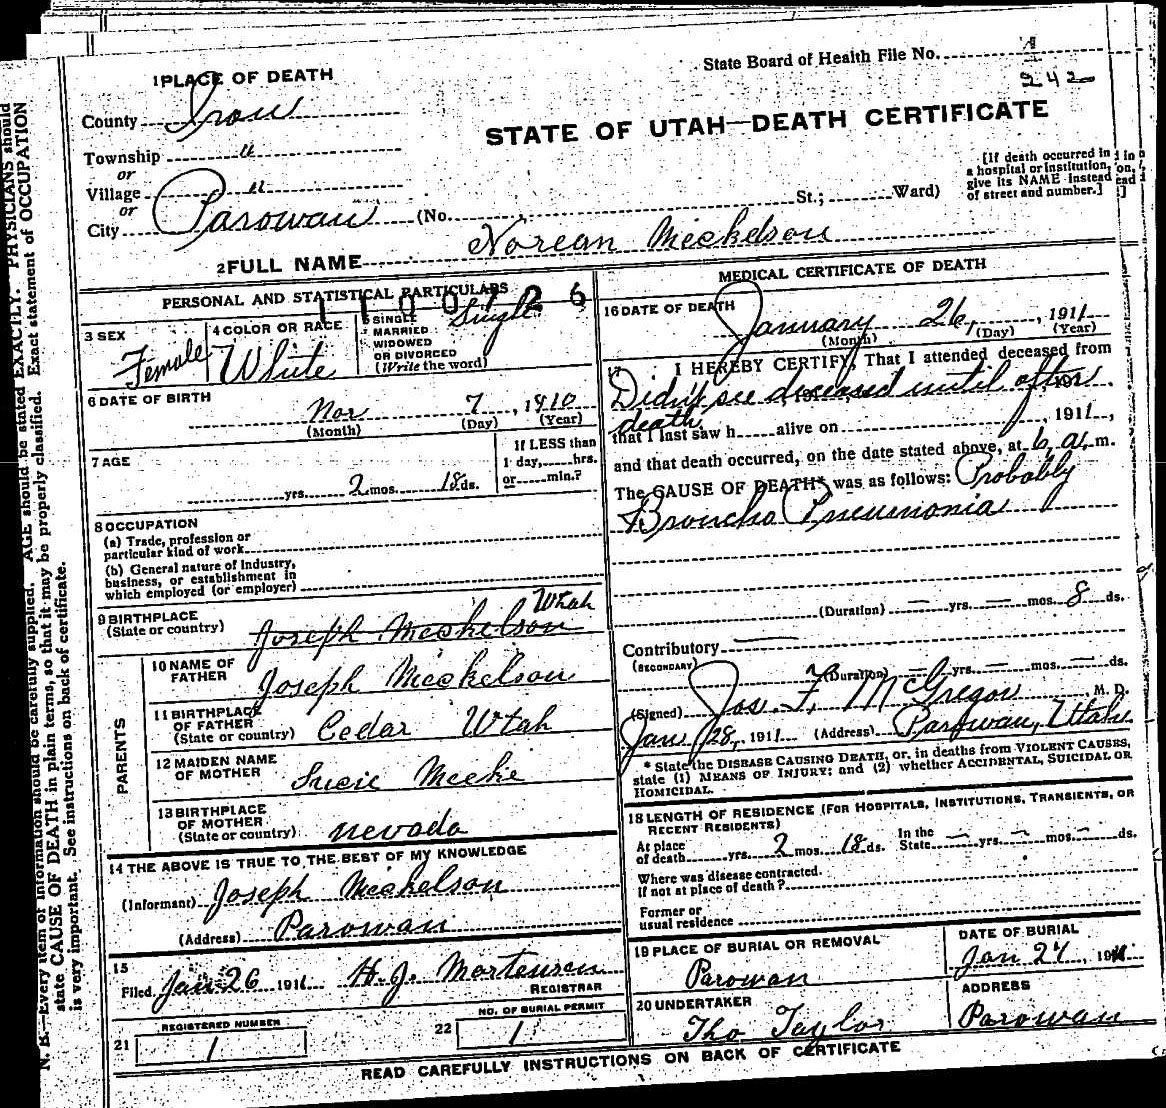 State Board of Health File No.
242
1 PLACE OF DEATH
County Iron
STATE OF UTAH—DEATH CERTIFICATE
Township "
or
Village "
or
City Parowan (No. St.; Ward)
[If death occurred in
a hospital or institution,
give its NAME instead
of street and number.]
2 FULL NAME Norean Mickelson
PERSONAL AND STATISTICAL PARTICULARS
1100726
3 SEX
Female
4 COLOR OR RACE
White
5 SINGLE
MARRIED
WIDOWED
OR DIVORCED
(Write the word)
Single
6 DATE OF BIRTH
Nov 7, 1910
(Month) (Day) (Year)
7 AGE
yrs. 2 mos. 18 ds.
If LESS than
1 day, hrs.
or min.?
8 OCCUPATION
(a) Trade, profession or
particular kind of work
(b) General nature of Industry,
business, or establishment in
which employed (or employer)
9 BIRTHPLACE
(State or country)
Utah
Joseph Mickelson
PARENTS
10 NAME OF
FATHER
Joseph Mickelson
11 BIRTHPLACE
OF FATHER
(State or country)
Cedar Utah
12 MAIDEN NAME
OF MOTHER
13 BIRTHPLACE
OF MOTHER
(State or country)
nevada
14 THE ABOVE IS TRUE TO THE BEST OF MY KNOWLEDGE
(Informant) Joseph Mickelson
(Address) Parowan
15
Filed Jan 26 1911 H. J. Mortensen
REGISTRAR
REGISTERED NUMBER
21 1
NO. OF BURIAL PERMIT
22 1
MEDICAL CERTIFICATE OF DEATH
16 DATE OF DEATH
January 26, , 1911
(Month) (Day) (Year)
17 I HEREBY CERTIFY, That I attended deceased from
Didn't see deceased until after
death
that I last saw h alive on , 1911,
and that death occurred, on the date stated above, at 6 a. m.
The CAUSE OF DEATH* was as follows: Probably
Broncho Pneumonia
(Duration) — yrs. — mos. 8 ds.
Contributory —
(SECONDARY)
(Duration) — yrs. — mos. — ds.
(Signed) Jos. F. McGregor M. D.
Jan 28, 1911 (Address) Parowan, Utah
* State the DISEASE CAUSING DEATH, or, in deaths from VIOLENT CAUSES,
state (1) MEANS OF INJURY; and (2) whether ACCIDENTAL, SUICIDAL OR
HOMICIDAL.
18 LENGTH OF RESIDENCE (FOR HOSPITALS, INSTITUTIONS, TRANSIENTS, OR
RECENT RESIDENTS)
At place
of death yrs. 2 mos. 18 ds.
In the
State — yrs. — mos. — ds.
Where was disease contracted.
if not at place of death?
Former or
usual residence
19 PLACE OF BURIAL OR REMOVAL
Parowan
DATE OF BURIAL
Jan 27, 1911
20 UNDERTAKER
Tho Taylor
ADDRESS
Parowan
READ CAREFULLY INSTRUCTIONS ON BACK OF CERTIFICATE
N. B.—Every item of information should be carefully supplied. AGE should be stated EXACTLY. PHYSICIANS should
state CAUSE OF DEATH in plain terms, so that it may be properly classified. Exact statement of OCCUPATION
is very important. See instructions on back of certificate.